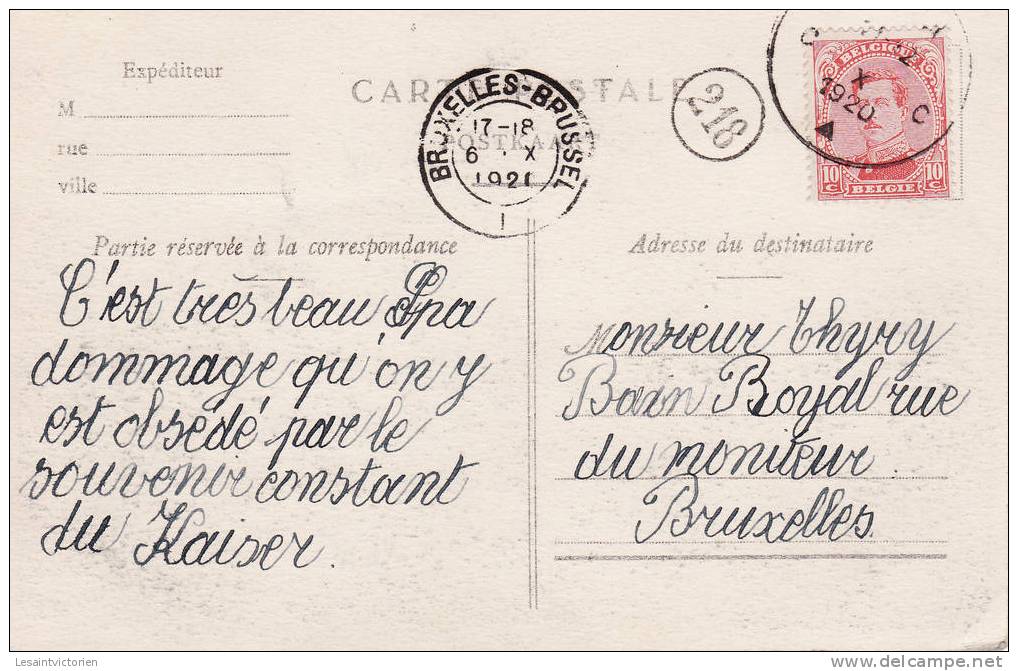 Expéditeur
M
rue
ville
CARTE POSTALE
POSTKAART
BRUXELLES-BRUSSEL
17-18
6 X
1921
1
218
X
1920
C
BELGIQUE
10 C 10 C
BELGIE
Partie réservée à la correspondance
C'est très beau Spa
dommage qu'on y
est obsédé par le
souvenir constant
du Kaiser.
Adresse du destinataire
Monsieur Thyry
Bain Royal rue
du moniteur
Bruxelles.
Lesaintvictorien
delcampe.net